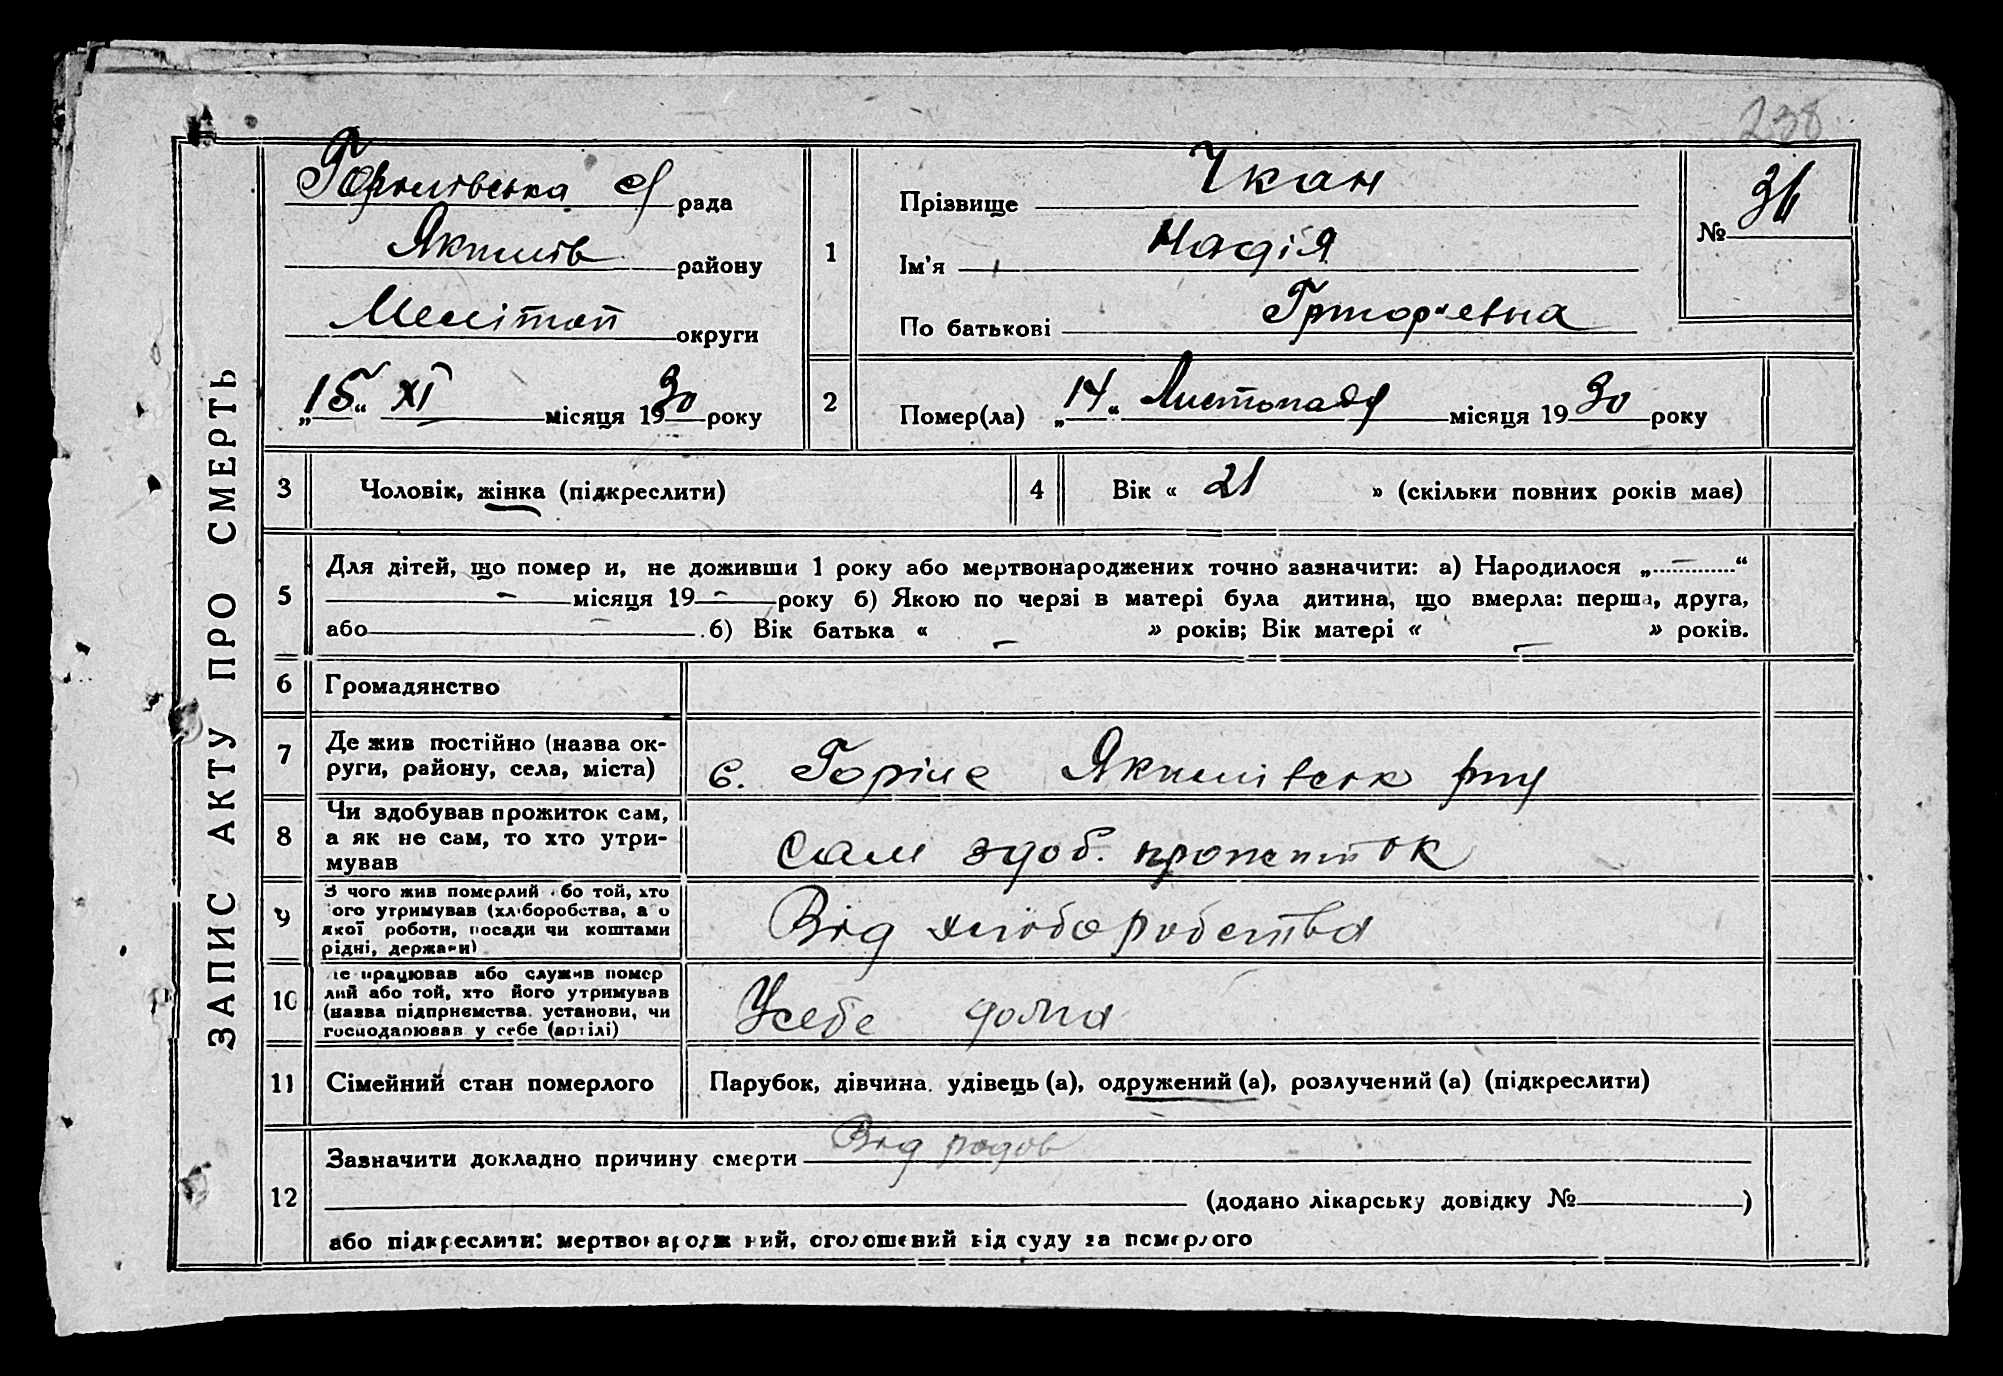 238
ЗАПИС АКТУ ПРО СМЕРТЬ
Горілівська с/рада
Якимів району
Мелітоп округи
„15“ XI місяця 1930 року
1
Прізвище Чкан
Ім’я Надія
По батькові Григорʼевна
№ 36
2
Помер(ла) „14“ Листопаду місяця 1930 року
3 Чоловік, жінка (підкреслити)
4 Вік « 21 » (скільки повних років має)
5
Для дітей, що помер и, не доживши 1 року або мертвонароджених точно зазначити: а) Народилося „ — “
— місяця 19 — року б) Якою по черзі в матері була дитина, що вмерла: перша, друга,
або — .б) Вік батька « — » років; Вік матері « — » років.
6 Громадянство
7
Де жив постійно (назва ок-
руги, району, села, міста)
с. Горіле Якимівськ рну
8
Чи здобував прожиток сам,
а як не сам, то хто утри-
мував
Сам здоб. прожиток
9
З чого жив померлий або той, хто
його утримував (хліборобства, або
якої роботи, посади чи коштами
рідні, держави)
Від хліборобства
10
Де працював або служив помер
лий або той, хто його утримував
(назва підприємства. установи, чи
господарював у себе (артілі)
Усебе дома
11 Сімейний стан померлого
Парубок, дівчина. удівець (а), одружений (а), розлучений (а) (підкреслити)
12
Зазначити докладно причину смерти Від родов
(додано лікарську довідку № )
або підкреслити: мертвонароджений, оголошений від суду за померлого